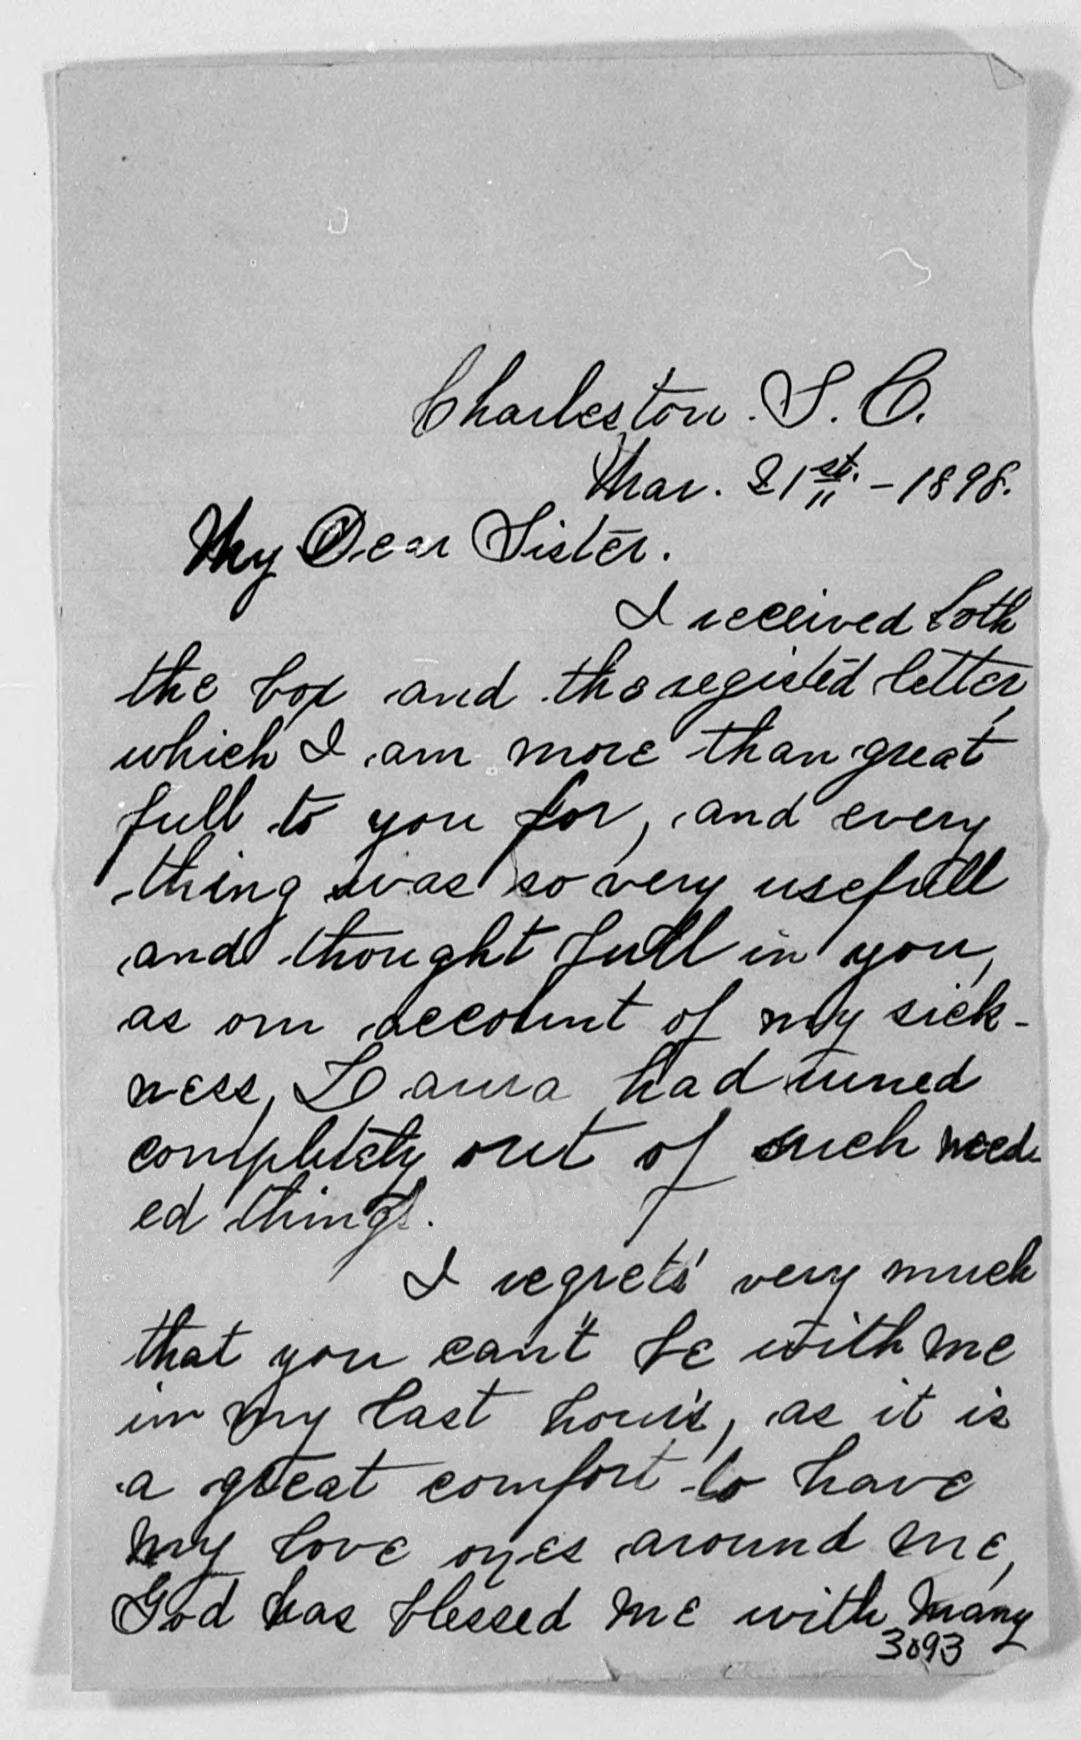 Charleston. S. C.
Mar. 21st. - 1898.
My Dear Sister.
I received both
the box and the registed letter,
which I am more than great
full to you for, and every
thing was so very usefull
and thought full in you,
as on account of my sick-
ness, Laura had runed
completely out of such need-
ed things.
I regrets very much
that you can't be with me
in my last hours, as it is
a great comfort to have
my love ones around me,
God has blessed me with many
3093